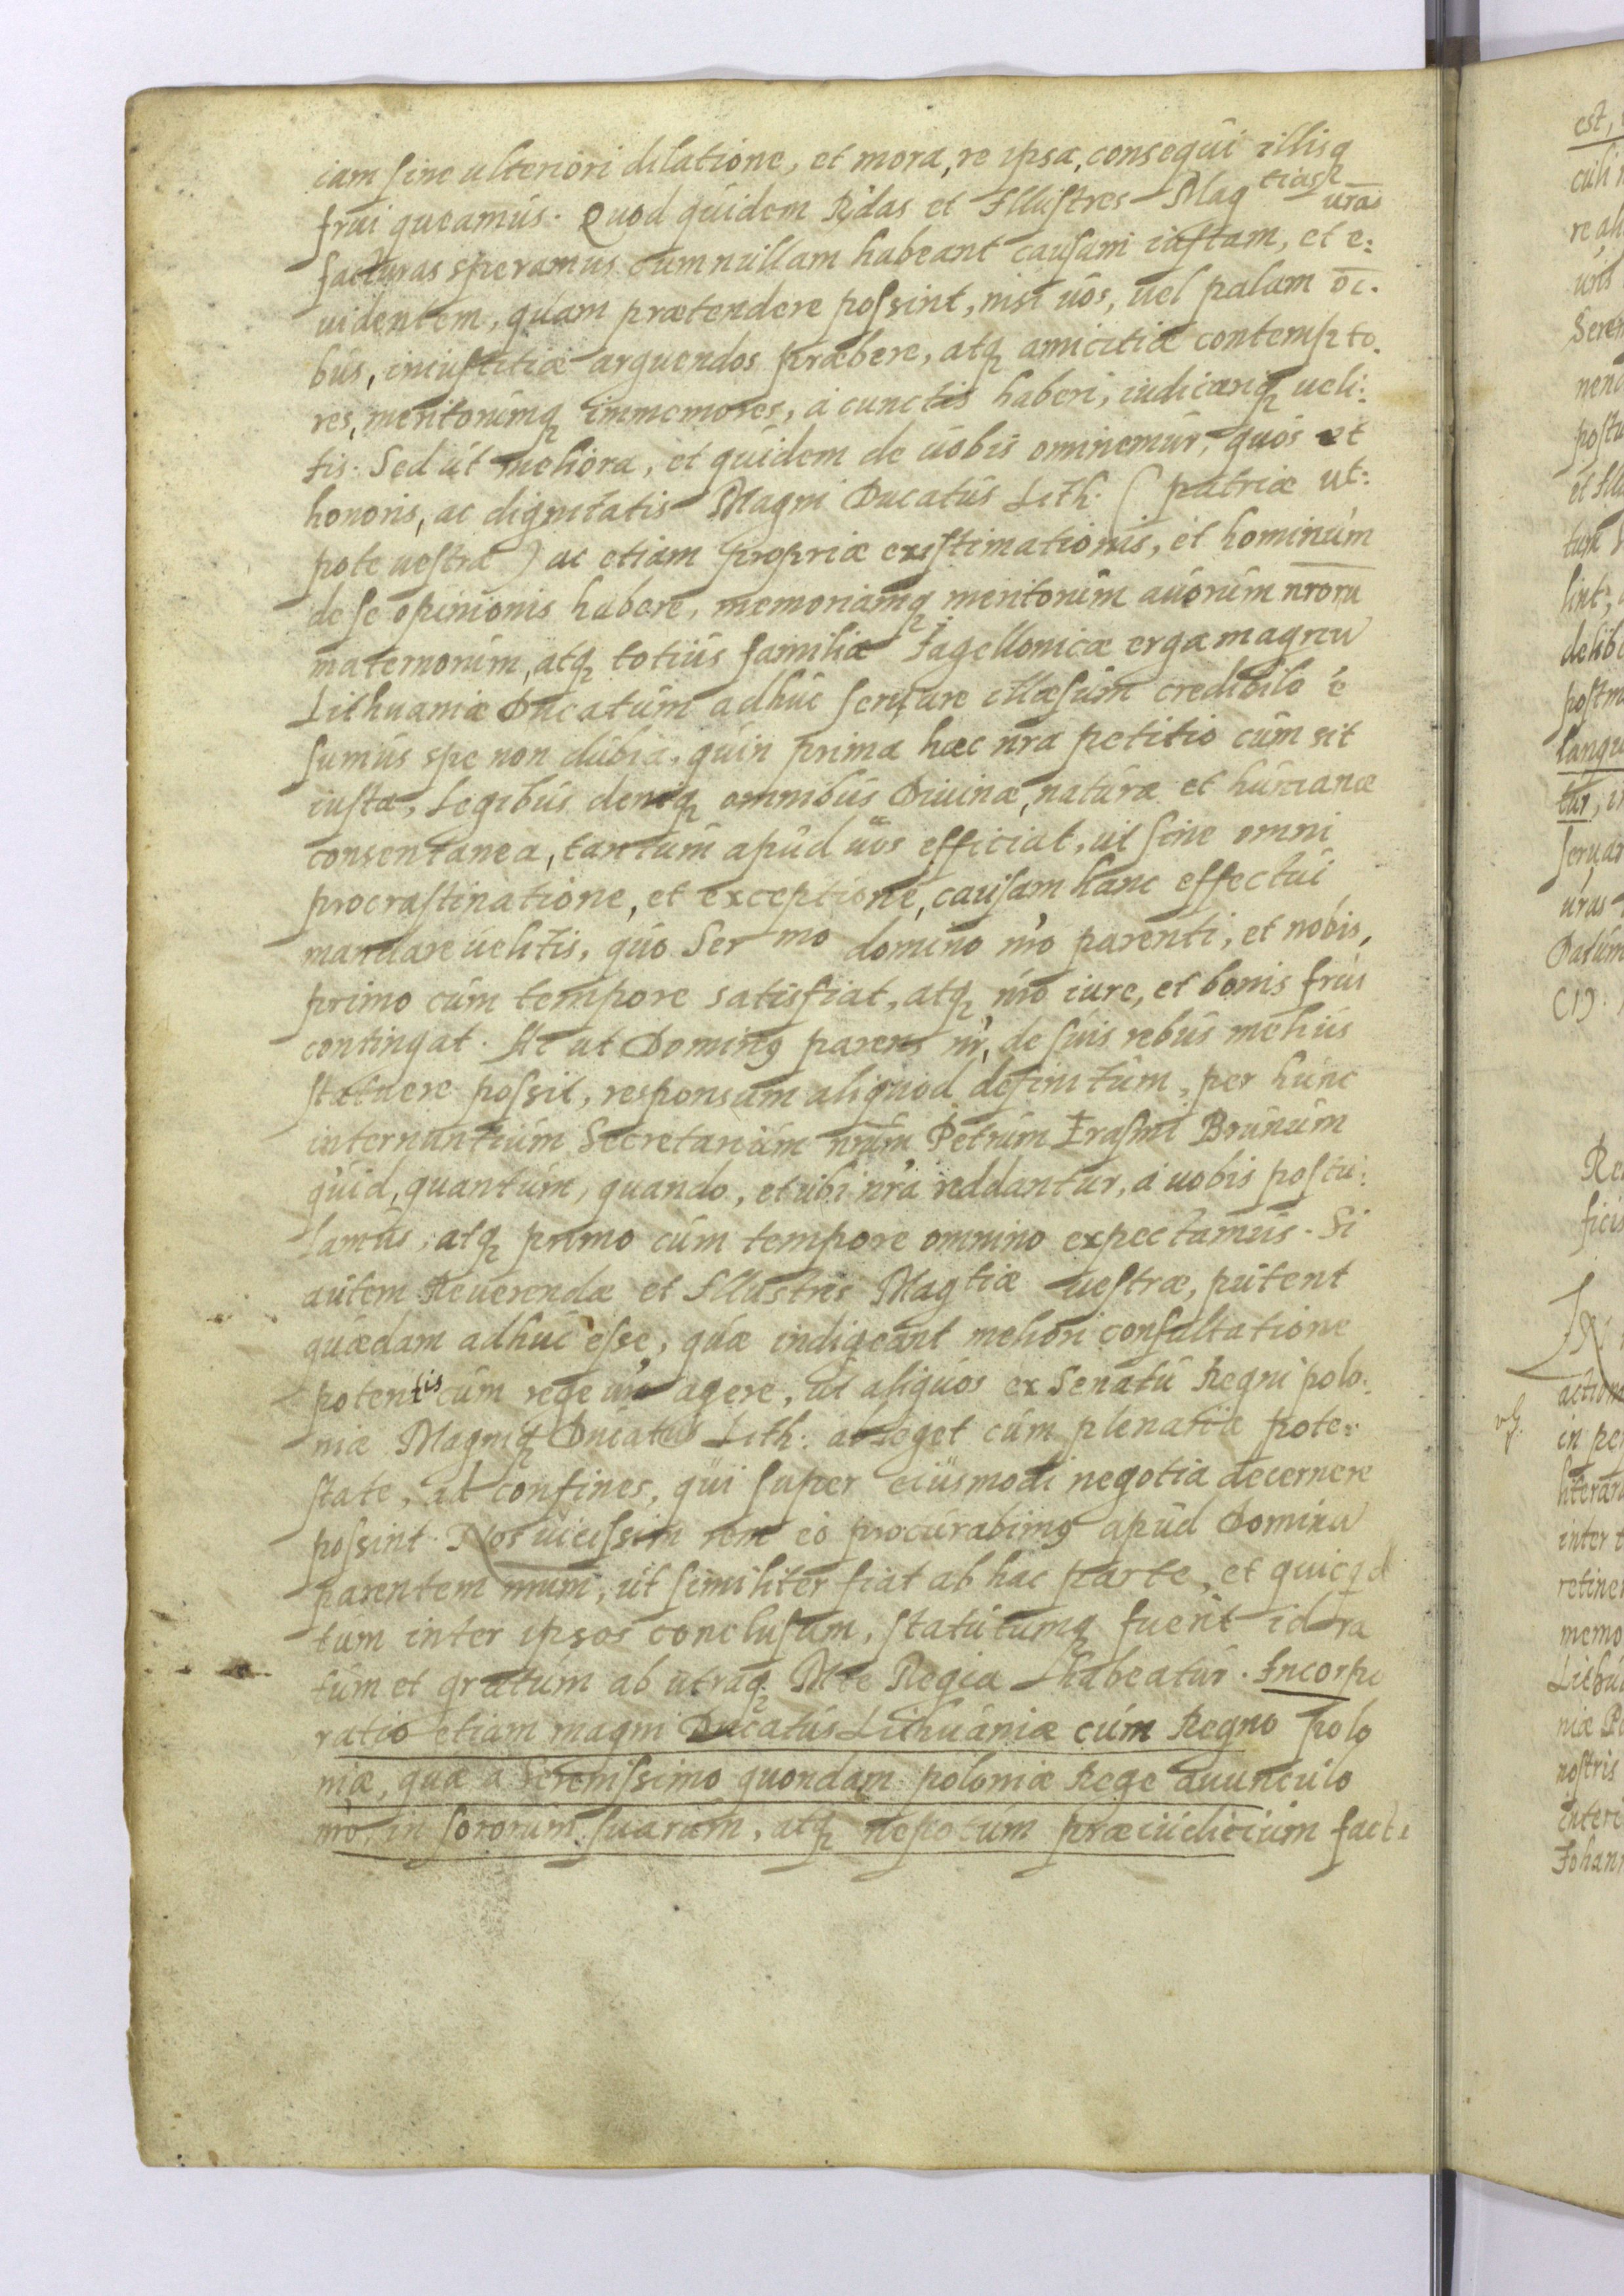 iam sine ulteriori dilatione, et mora, re ipsa, consequi illisq
frui queamus. Quod quidem Rdas et Illustres Mag tias vras
facturas speramus cum nullam habeant causam iustam, et e:
uidentem, quam prætendere possint, nisi uos, uel palam oi.
bus, iniustitiæ arguendos præbere, atq amicitiæ contempto.
res, meritorumq immemores, a cunctis haberi, iudicariq ueli:
tis. Sed ut meliora, et quidem de uobis ominemur, quos et
honoris, ac dignitatis Magni Ducatus Lith. (patriæ ut:
pote uestræ) ac etiam propriæ existimationis, et hominum
de se opinionis habere, memoriamq meritorum auorum nroru
maternorum, atq totius familiæ Jagellonicæ erga magnu
Lithuaniæ Ducatum adhuc seruare illæsum credibile e
sumus spe non dubia, quin prima hæc nra petitio cum sit
iusta, Legibus deniq omnibus Diuinæ, naturæ et humanæ
consentanea, tantum apud uos efficiat, ut sine omni
procrastinatione, et exceptione, causam hanc effectui
mandare uelitis, quo Ser mo domino nro parenti, et nobis,
primo cum tempore satisfiat, atq nro iure, et bonis frui
contingat. At ut Dominꝰ parens nr, de suis rebus melius
statuere possit, responsum aliquod definitum, per hunc
internuntium Secretarium nrum Petrum Erasmi Brunum
quid, quantum, quando, et ubi nra reddantur, a uobis postu:
lamus, atq primo cum tempore omnino expectamus. Si
autem Reuerendæ et Illustris Magtiæ uestræ, putent
quædam adhuc esse, quæ indigeant meliori consultatione
potentis cum rege uro agere, ut aliquos ex Senatu Regni polo:
niæ Magniq Ducatus Lith. ableget cum plenaria pote:
state, ad confines, qui super eiusmodi negotia decernere
possint. Nos uicissim rem eo procurabimꝰ apud Dominu
parentem nrum, ut similiter fiat ab hac parte, et quicqd
tum inter ipsos conclusum, statutumq fuerit id ra
tum et gratum ab utraq Mte Regia habeatur. Incorpo
ratio etiam magni Ducatus Lithuaniæ cum Regno polo
niæ, quæ a Serenissimo quondam poloniæ Rege auunculo
nro, in sororum suarum, atq nepotum præiudicium fact